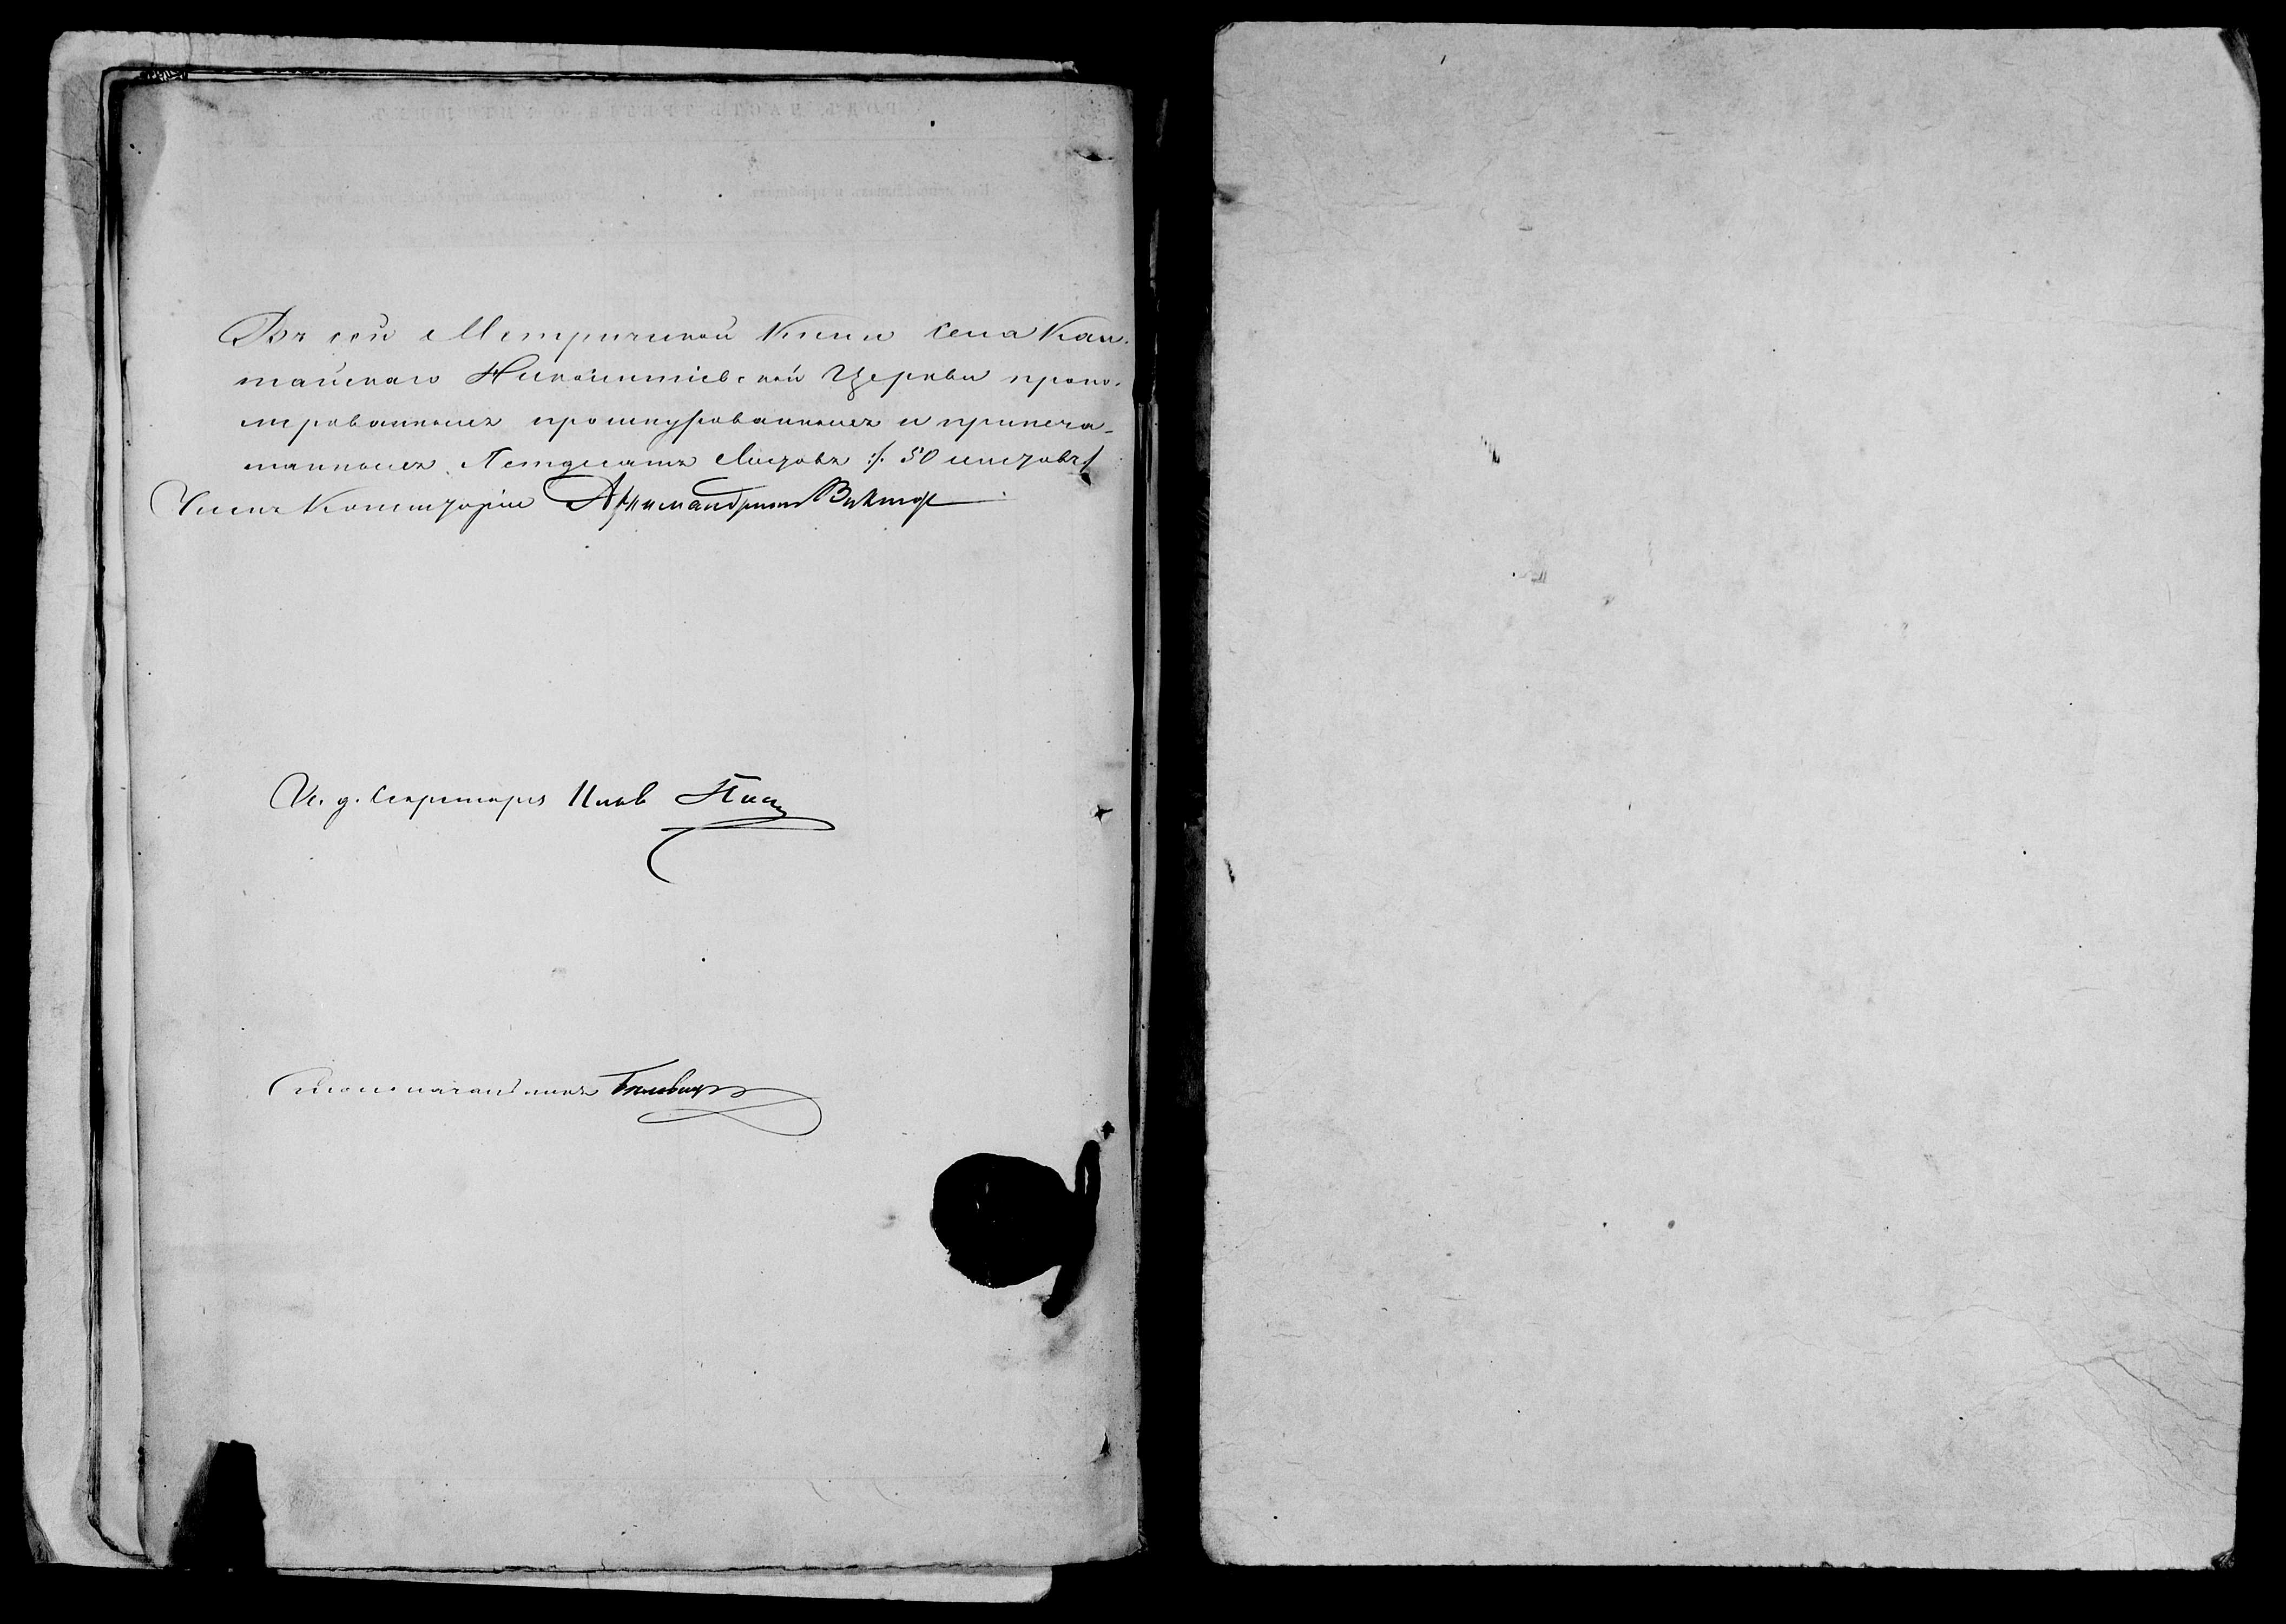 Въ сей Метричиской Книги села Кан-
тайскаго Никольшіевской Церкви прону-
мированныхъ прошнурованныхъ и припеча-
танныхъ Петдесатъ Листовъ :/. 50 листовъ /
Членъ Консисторіи Архимандритъ Виктор
И. д. Секретаря
Столоначальникъ